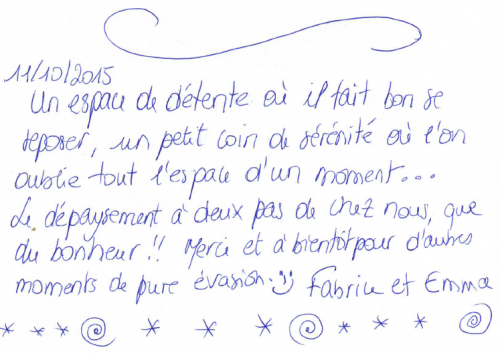 11/10/2015
Un espace de détente où il fait bon se
reposer, un petit coin de sérénité où l'on
oublie tout l'espace d'un moment...
Le dépaysement à deux pas de chez nous, que
du bonheur!! Merci et à bientôt pour d'autres
moments de pure évasion. Fabrice et Emma